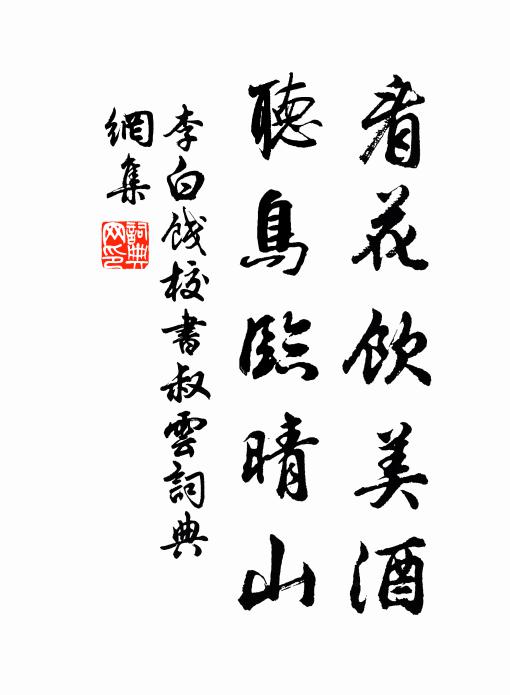 看花飲美酒
聽鳥臨晴山
李白餞校書叔雲詞典
網集
詞典
网印